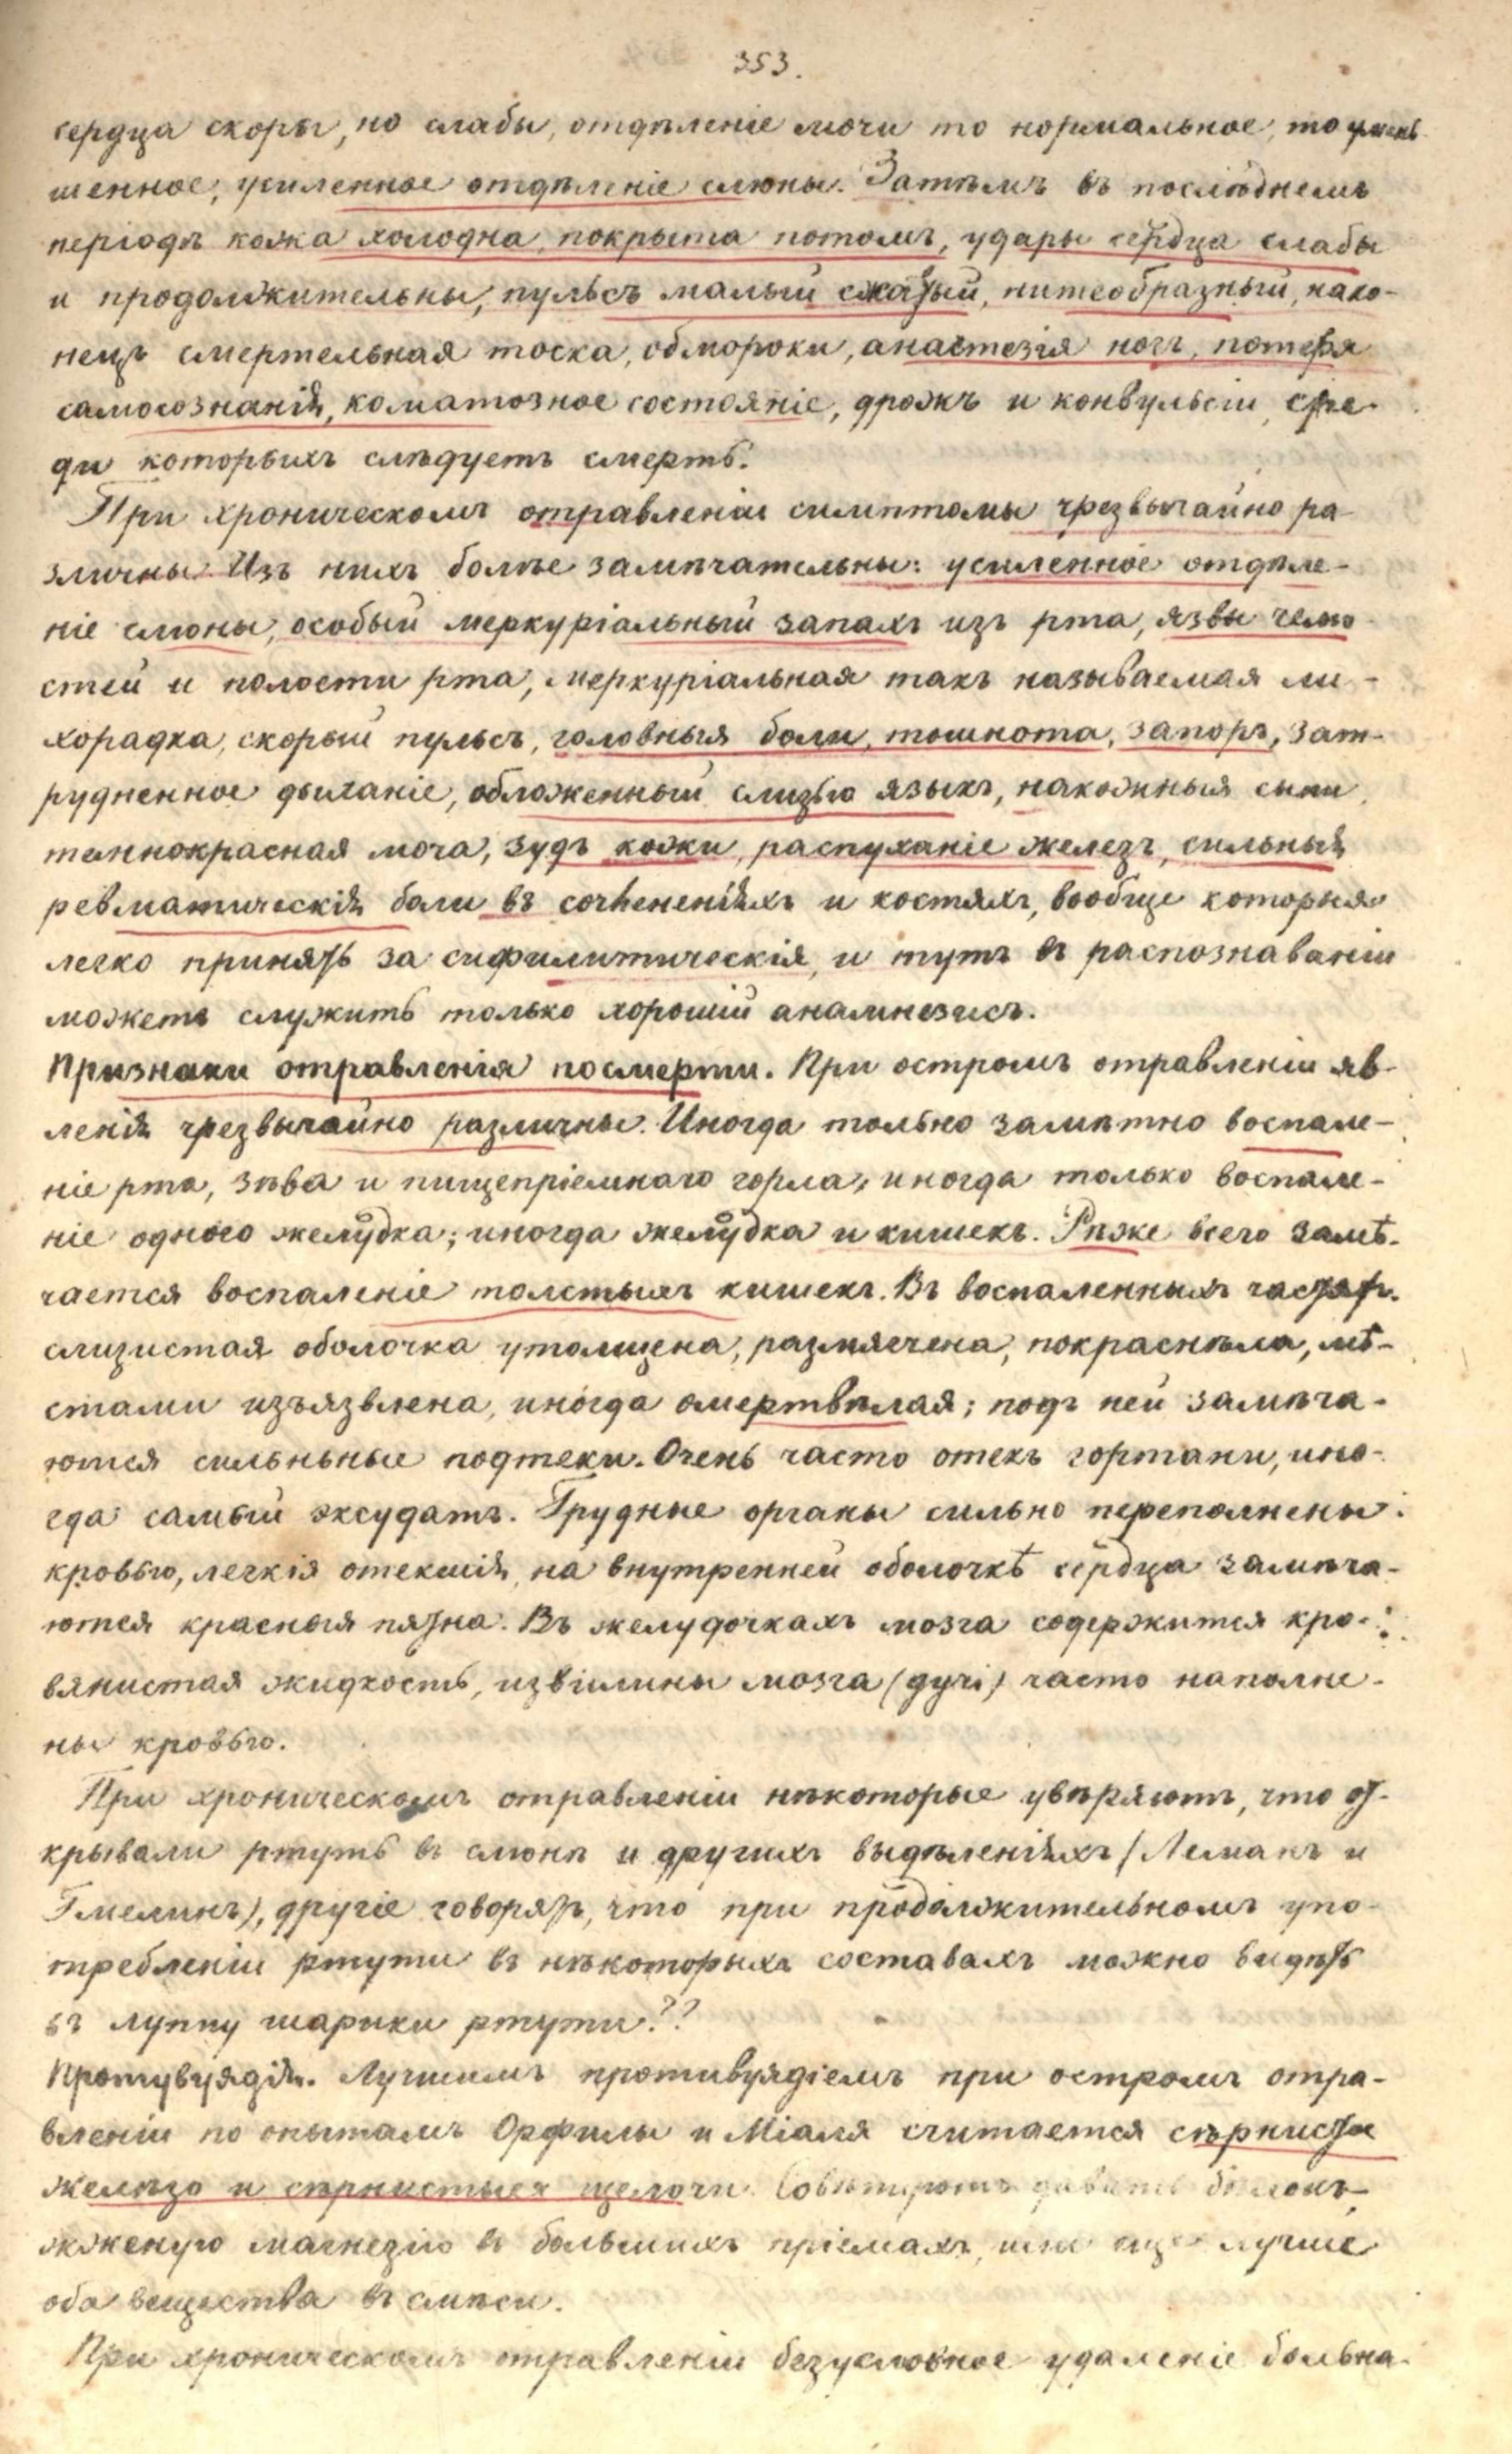 353.
сердца скоры, но слабы, отдѣленіе мочи то нормальное, то умень
шенное, усиленное отдѣленіе слюны. Затѣмъ въ послѣднемъ
періодѣ кожа холодна, покрыта потомъ, удары сердца слабы
и продолжительны, пульсъ малый сжатый, нитеобразный, нако-
нецъ смертельная тоска, обмороки, анастезія ногъ, потеря
самосознанія, коматозное состояніе, дрожь и конвульсіи, сре-
ди которыхъ слѣдуетъ смерть.
При хроническомъ отравленіи симптомы чрезвычайно ра
зличны. Изъ нихъ болѣе замѣчательны: усиленное отдѣле-
ніе слюны, особый меркуріальный запахъ изъ рта, язвы челю
стей и полости рта, меркуріальная такъ называемая ли-
хорадка, скорый пульсъ, головныя боли, тошнота, запоръ, зат-
рудненное дыханіе, обложенный слизью языкъ, накожныя сыпи,
темнокрасная моча, зудъ кожи, распуханіе железъ, сильныя
ревматическія боли въ сочлененіяхъ и костяхъ, вообще которыя
легко принять за сифилитическія, и тутъ въ распознаваніи
можетъ служить только хорошій анамнезисъ.
Признаки отравленія посмерти. При остромъ отравленіи яв-
ленія чрезвычайно различны. Иногда только замѣтно воспале-
ніе рта, зѣва и пищепріемнаго горла, иногда только воспале-
ніе одного желудка; иногда желудка и кишекъ. Рѣже всего замѣ-
чается воспаленіе толстыхъ кишекъ. Въ воспаленныхъ частяхъ
слизистая оболочка утолщена, размягчена, покраснѣла, мѣ-
стами изъязвлена, иногда омертвѣлая; подъ ней замѣча-
ются сильньные подтеки. Очень часто отекъ гортани, ино-
гда самый эксудатъ. Грудные органы сильно переполнены
кровью, легкія отекшія, на внутренней оболочкѣ сердца замѣча-
ются красныя пятна. Въ желудочкахъ мозга содержится кро-
вянистая жидкость, извилины мозга (дучі) часто наполне-
ны кровью.
При хроническомъ отравленіи нѣкоторые увѣряютъ, что от-
крывали ртуть въ слюнѣ и другихъ выдѣленіяхъ (Леманъ и
Гмелинъ), другіе говорятъ, что при продолжительномъ упо-
требленіи ртути въ нѣкоторыхъ составахъ можно видѣть
въ луппу шарики ртути??
Протувуядія. Лучшимъ противуядіемъ при остромъ отра-
вленіи по опытамъ Орфилы и Міаля считается сѣрнистое
желѣзо и сѣрнистыя щелочи. Совѣтуютъ давать бѣлокъ,
жженую магнезію въ большихъ пріемахъ, или еще лучше
оба вещества въ смѣси.
При хроническомъ отравленіи безусловное удаленіе больна-